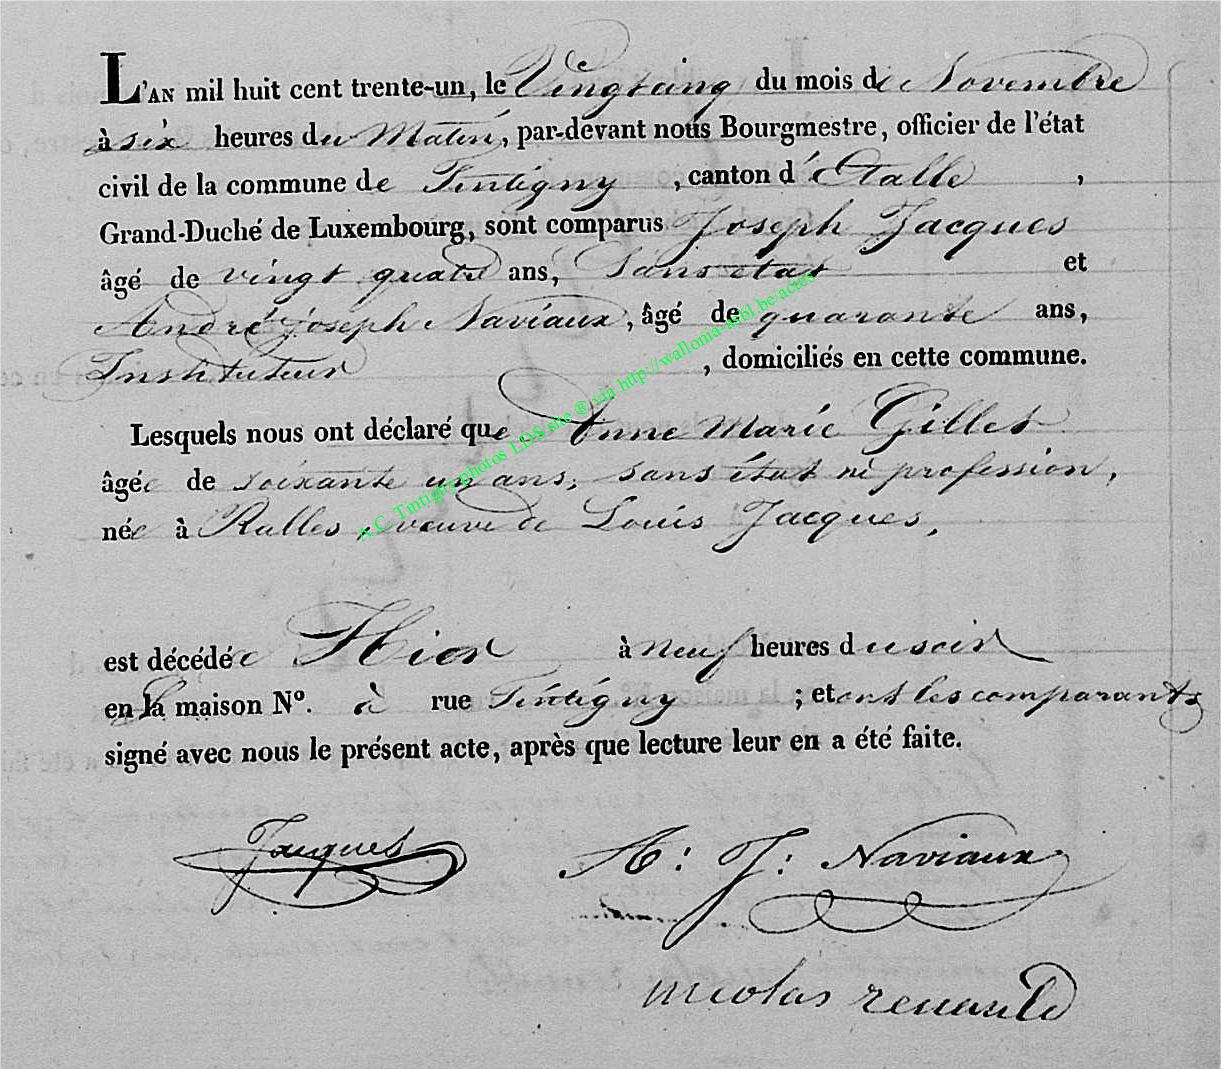 L'AN mil huit cent trente-un, le Vingt cinq du mois de Novembre
à six heures du Matin, par-devant nous Bourgmestre, officier de l'état
civil de la commune de Tintigny, canton d'Etalle,
Grand-Duché de Luxembourg, sont comparus Joseph Jacques
âgé de vingt quatre ans, Sans état et
André joseph Naviaux, âgé de quarante ans,
Instituteur, domiciliés en cette commune.
Lesquels nous ont déclaré que Anne Marie Gillet
âgée de soixante un ans, sans état ni profession,
née à Rulles, veuve de Louis Jacques,
est décédée Hier à neuf heures du soir
en la maison Nº. à rue Tintigny ; et ont les comparants
signé avec nous le présent acte, après que lecture leur en a été faite.
Jacques
A: J: Naviaux
nicolas renauld
A.C. Tintigny photos LDS site ® via http://wallonia-asbl.be/actes